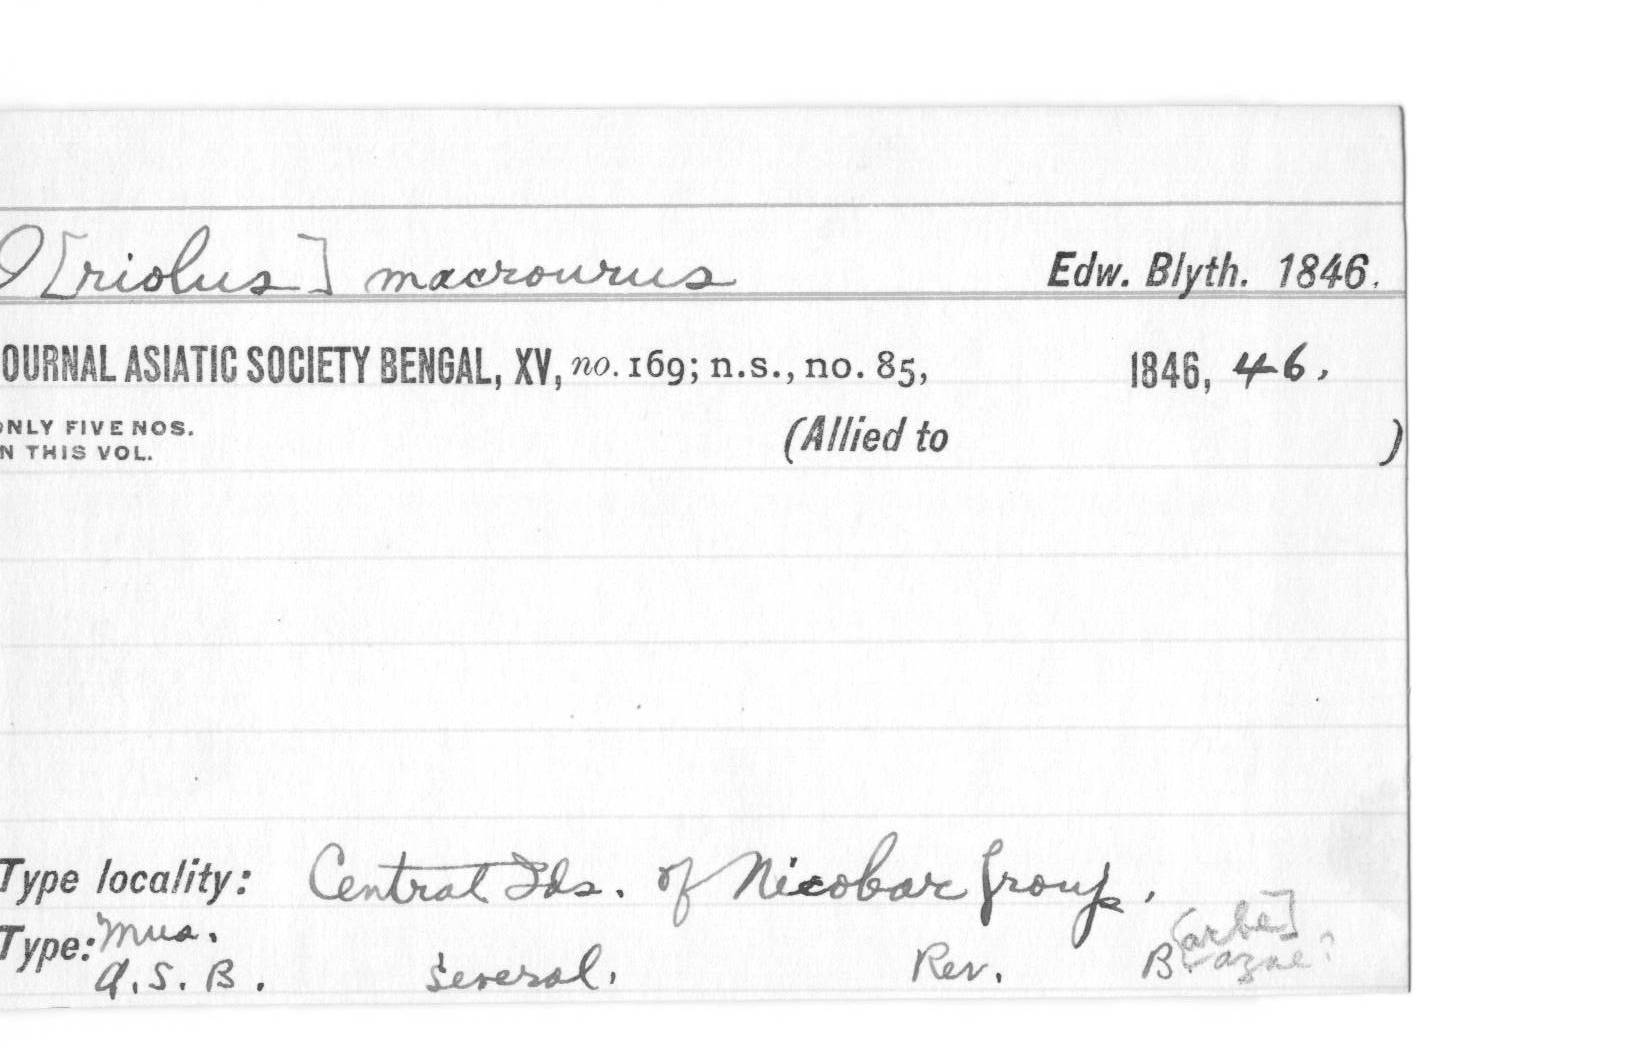 O[riolus] macrourus Edw. Blyth. 1846.
OURNAL ASIATIC SOCIETY BENGAL, XV, no. 169; n.s., no. 85, 1846, 46.
ONLY FIVE NOS. (Allied to )
N THIS VOL.
Type locality: Central Ids. of Nicobar group.
Type: Mus. [arbe]
A. S. B. Several. Rev. B.